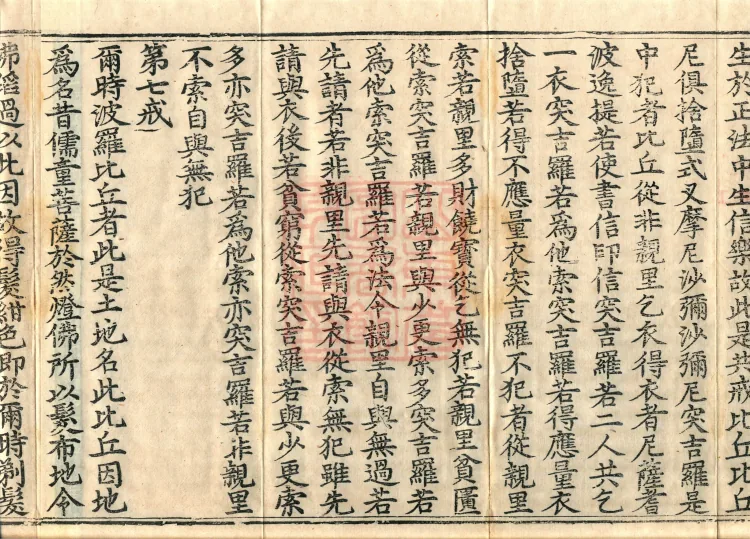 生於正法中生信樂故此是共戒比丘比丘
尼俱捨墮式叉摩尼沙彌沙彌尼突吉羅是
中犯者比丘從非親里乞衣得衣者尼薩耆
波逸提若使書信印信突吉羅若二人共乞
一衣突吉羅若為他索突吉羅若得應量衣
捨墮若得不應量衣突吉羅不犯者從親里
索若親里多財饒寶從乞無犯若親里貧匱
從索突吉羅若親里與少更索多突吉羅若
為他索突吉羅若為法令親里自與無過若
先請者若非親里先請與衣從索無犯雖先
請與衣後若貧窮從索突吉羅若與少更索
多亦突吉羅若為他索亦突吉羅若非親里
不索自與無犯
第七戒
爾時波羅比丘者此是土地名此比丘因地
為名昔儒童菩薩於然燈佛所以髮布地令
佛蹈過以此因故得髮紺色即於爾時剃髮